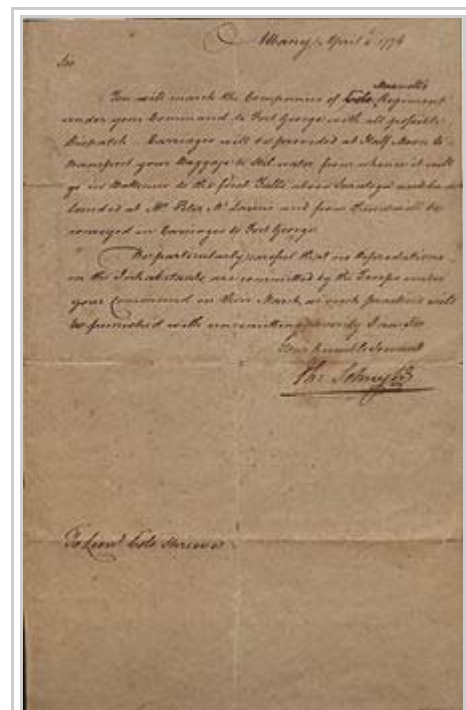 Albany April 6 1776
Sir
Maxwell's
You will march the Companies of Colo. Regiment
under your Command to Fort George with all possible
Dispatch Carriages will be provided at Half Moon to
transport your Baggage to Stil water from whence it will
go in Batteaus to the first Falls above Saratoga and be
landed at Mr. Peter and from thence will be
conveyed in Carriages to Fort George
Be particularly careful that no Depredations
on the Inhabitants are committed by the Troops under
your Command on their March as such practices will
be punished with unremitting severity I am Sir
Your humble Servant
Ph: Schuyler
To Lieut. Colo. Shreve